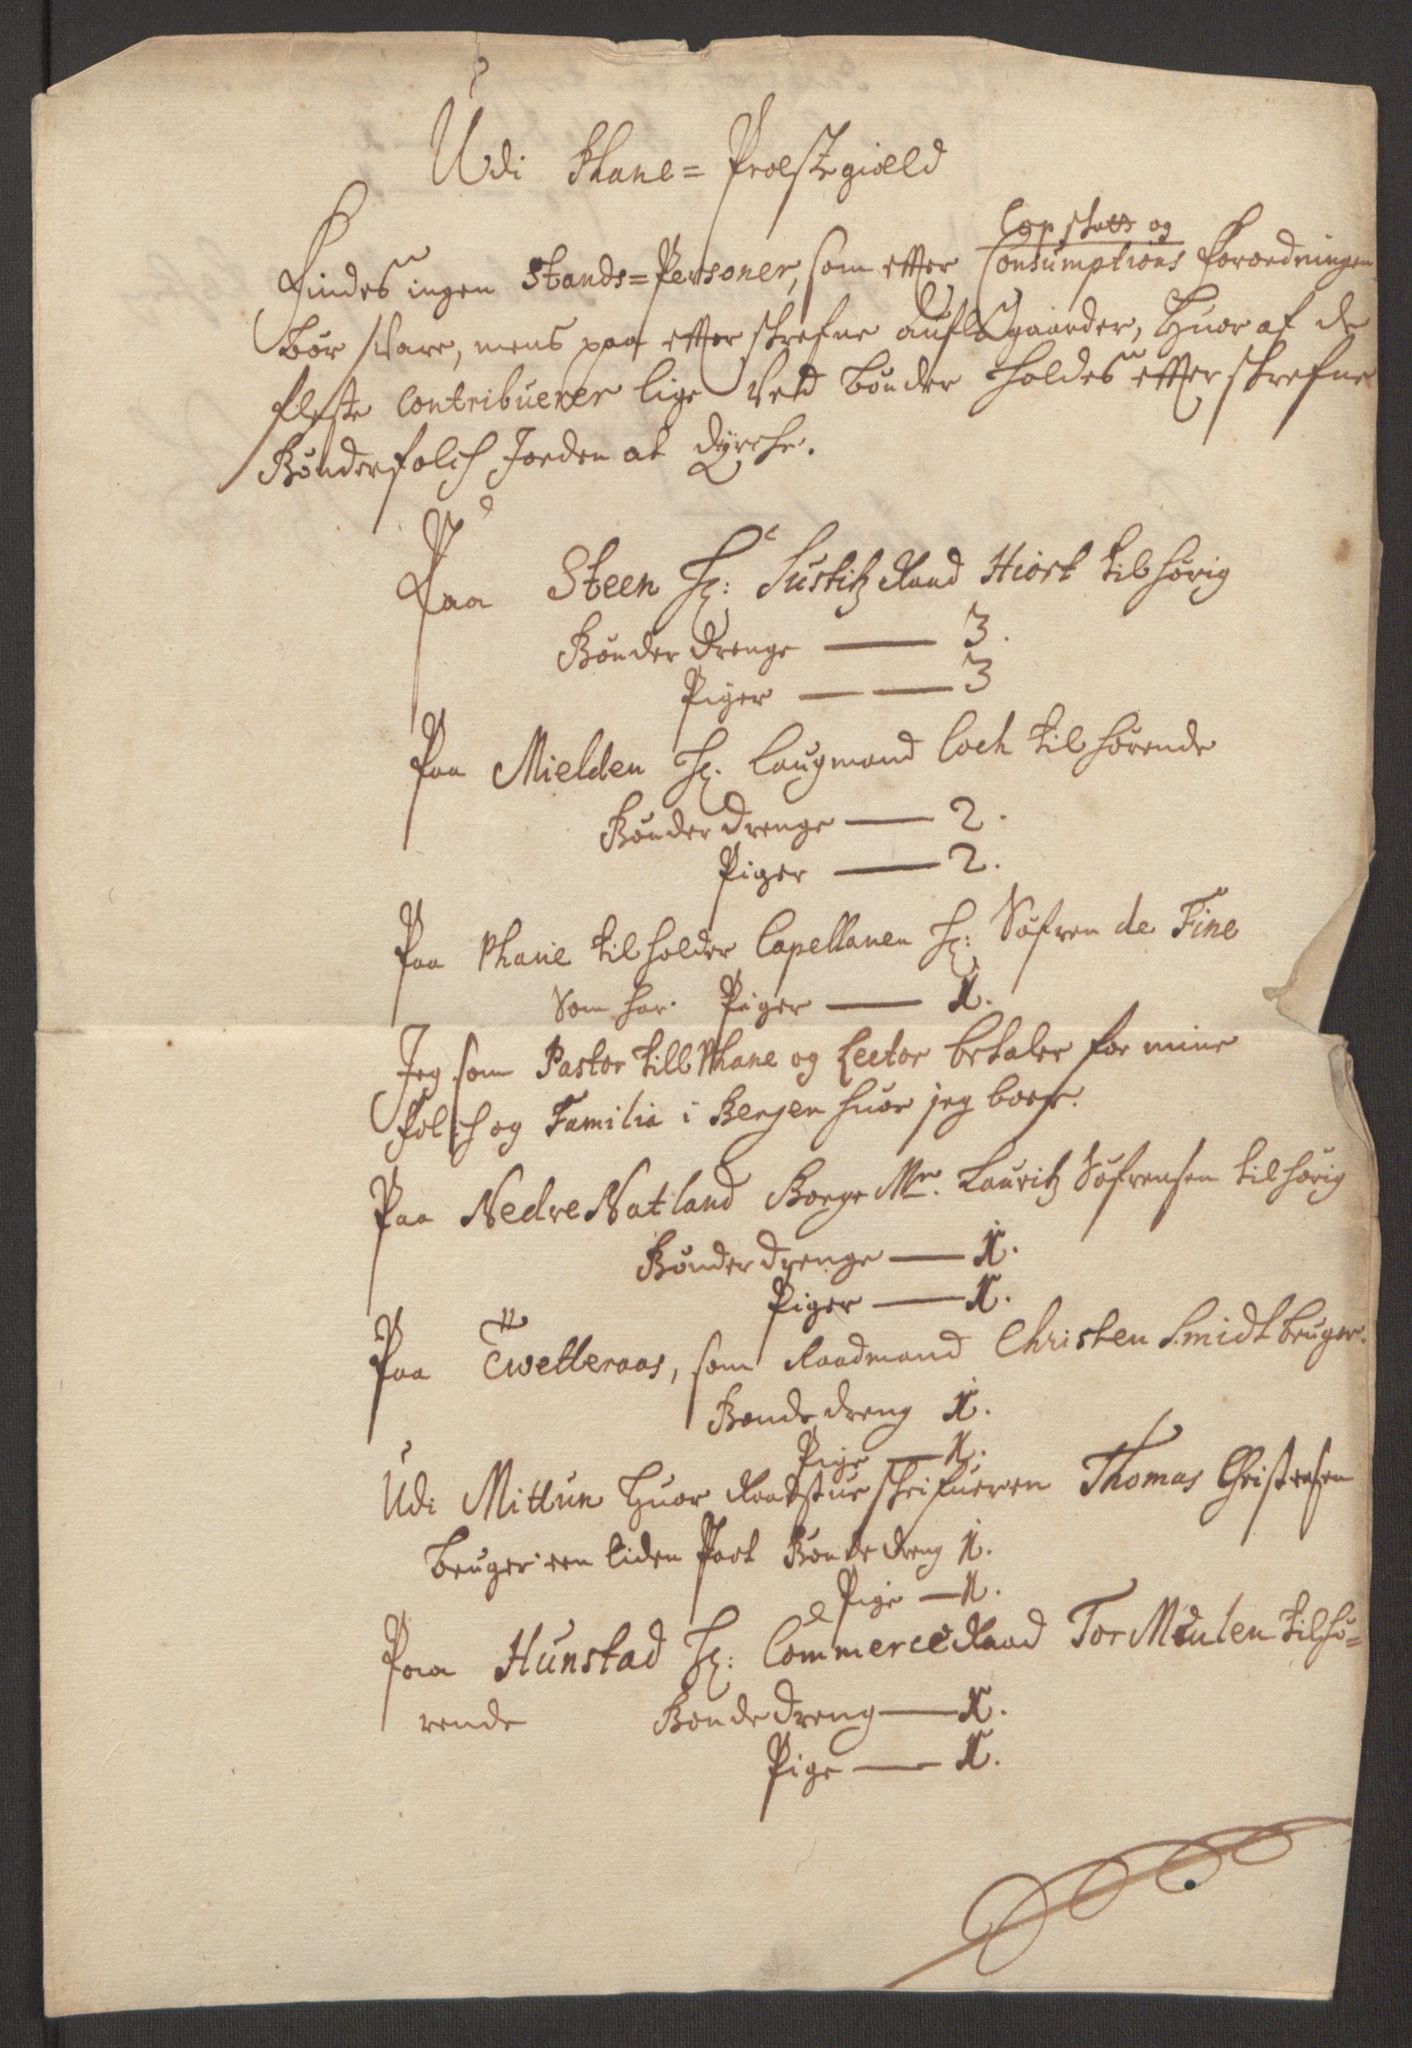 Udi Phane = Præstegiæld
Cop skatts og
Findes ingen Stands=Personer, som effter Consumptions Forordningen
bør svare, mens paa effterskrefne auflsgaarder, Huor af de
fleste Contribuerer lige Ved bønder holdes effterskrefne
Bønderfolch Jorden at dyrche.
Paa Steen Hr: Justitz Raad Hiort tilhørig
Bønder drenge — 3.
Piger — — 3
Paa Mielden Hr. Laugmand Coch tilhørende
Bønder drenge — 2.
Piger — 2.
Paa Phane tilholder Capellanen Hr: Søfren de Fine
Som har. Piger — 1.
Jeg som Pastor till Phane og Lector betaler for mine
folch og Familia i Bergen huor jeg boer.
Paa Nedre Natland Borger Mr. Lauritz Søfrensen tilhørig
Bønder drenge — 1.
Piger — 1.
Paa Twetteraas, som Raadmand Christen Smidt bruger.
Bonde dreng 1.
Pige — 1.
Udi Mittun Huor Raadstue skrifueren Thomas Christensen
bruger een liden Part Bonde dreng 1.
Pige — 1.
Paa Hunstad Hr: Commerce Raad Tor Meulen tilhø=
rende Bonde dreng — 1.
Pige — 1.